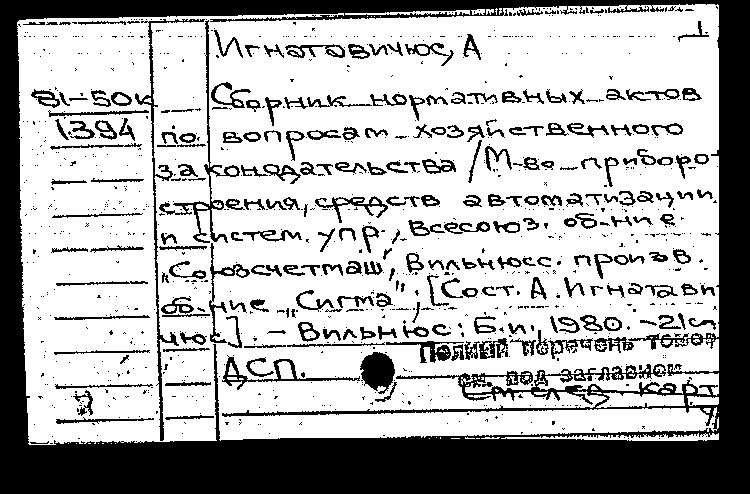 1
Игнатавичюс, А
81-50к Сборник нормативных актов
1394 по вопросам хозяйственного
законодательства / М-во приборо-
строения, средств автоматизации
и систем. упр., Всесоюз. об-ние
„Союзсчетмаш", Вильнюсс. произв.
об-ние „Сигма"; [Сост. А. Игнатави-
чюс]. - Вильнюс: Б.и., 1980. - 21см
Полный перечень томов
ДСП.
см. под заглавием
См. след. карт